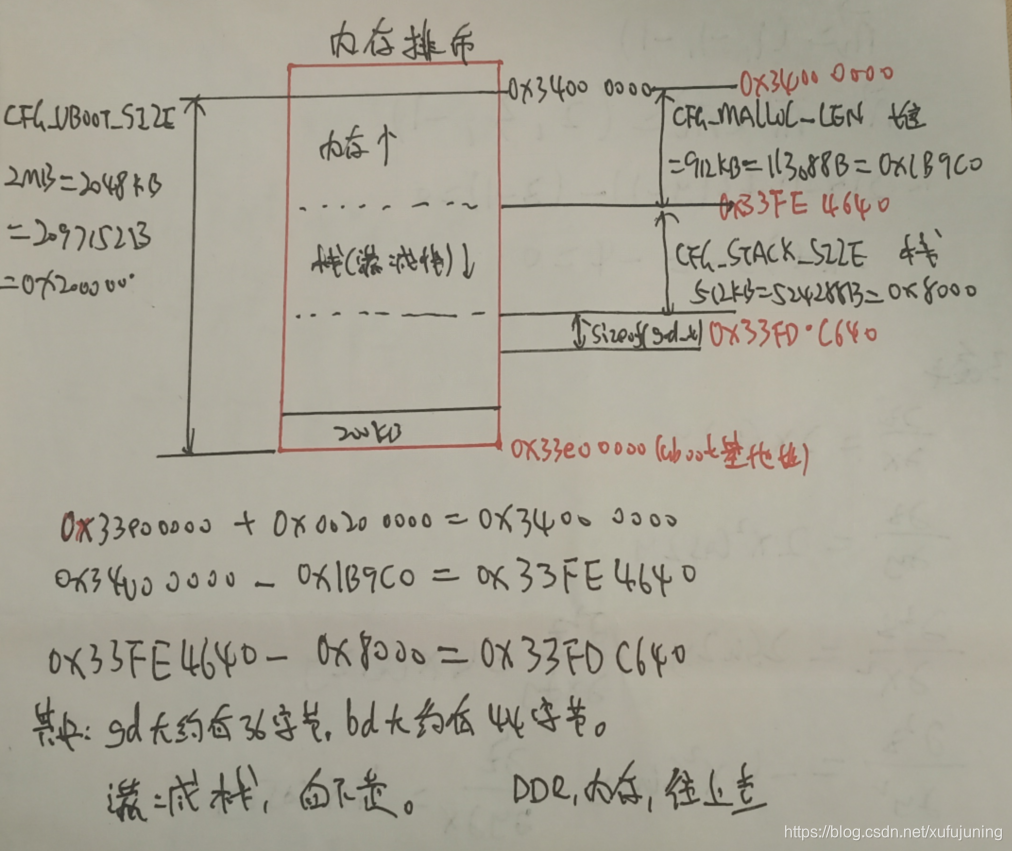 内存排布
0X3400 0000
0X3400 0000
CFG_UBOOT_SIZE
2MB=2048KB
=2097152B
=0X200000
内存↑
栈(满减栈)↓
200KB
CFG_MALLOC_LEN 长度
=912KB=113088B=0X1B9C0
0X33FE 4640
CFG_STACK_SIZE 栈
512KB=524288B=0X8000
sizeof(gd_t) 0X33FD C640
0X33e00000(uboot基地址)
0X33e00000 + 0X0020 0000=0X3400 0000
0X3400 0000 - 0X1B9C0 = 0X33FE4640
0X33FE4640- 0X8000=0X33FDC640
其中: gd大约占36字节, bd大约占44字节。
满减栈, 向下走。 DDR,内存,往上走
https://blog.csdn.net/xufujuning